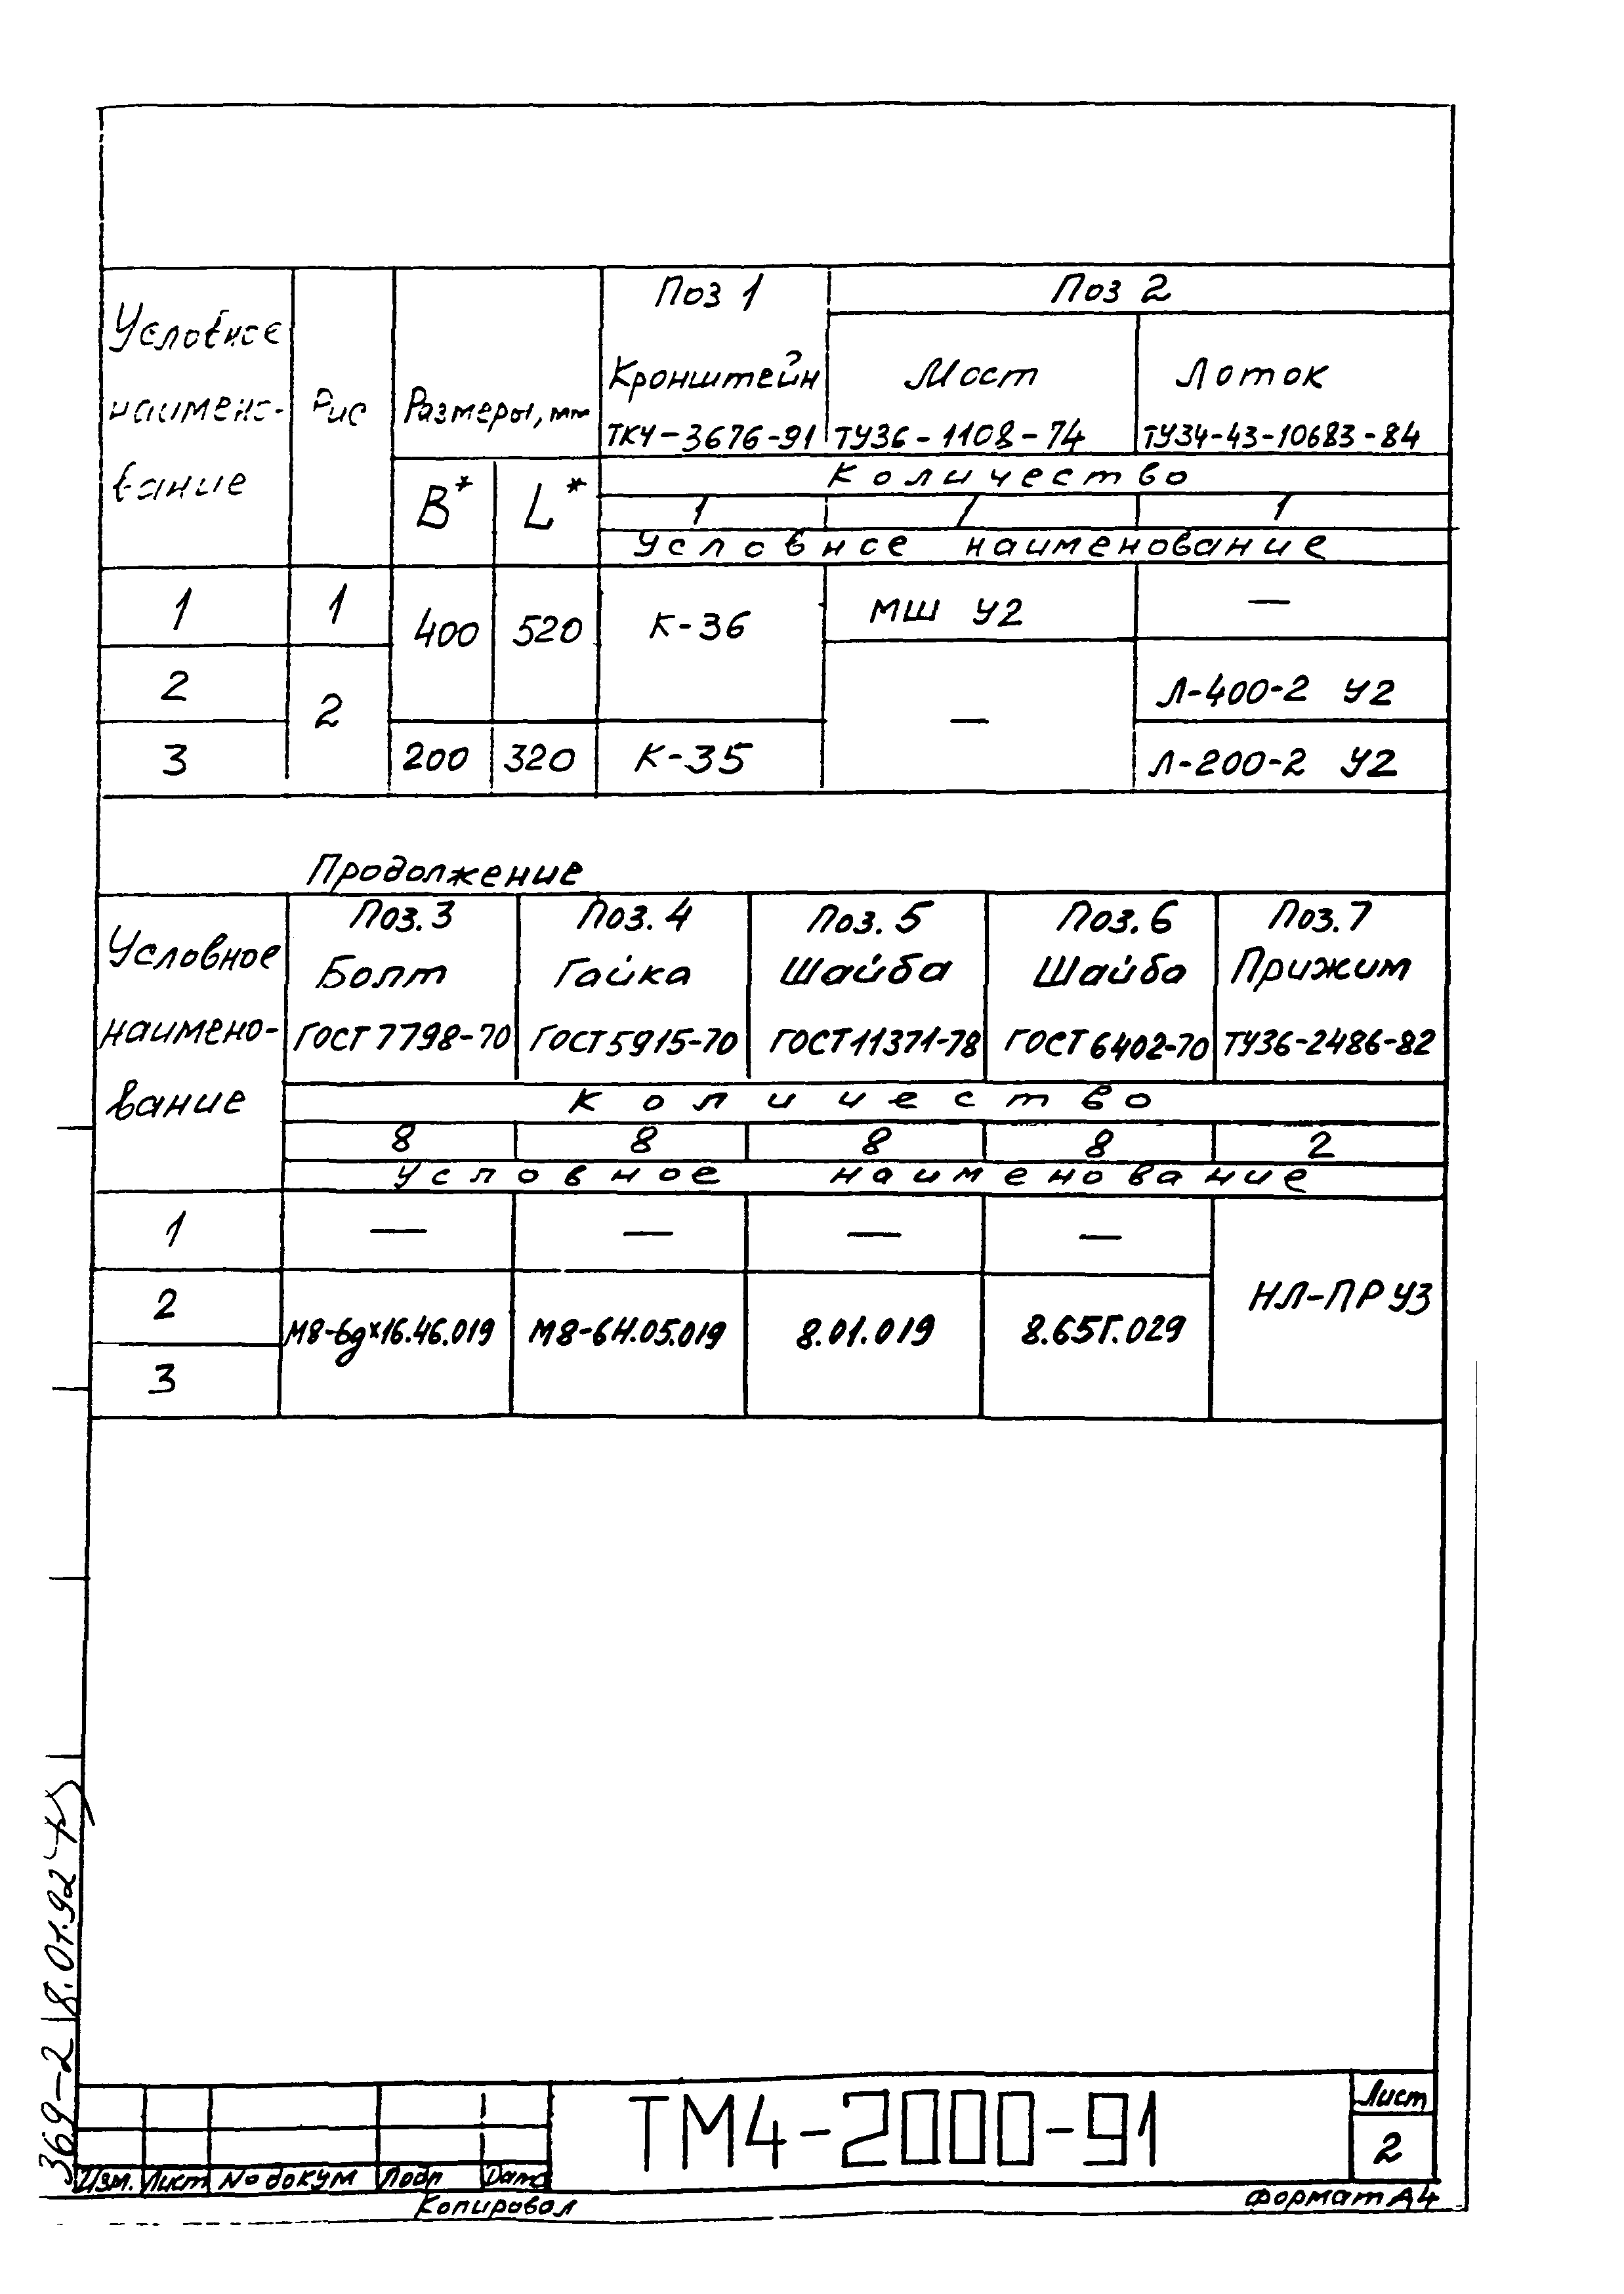 Поз 1 Поз 2
Условное
наимено-
вание
Рис
Размеры, мм
Кронштейн Мост Лоток
ТК4-3676-91 ТУ36-1108-74 ТУ34-43-10683-84
Количество
B* L*
1 1 1
Условное наименование
1 1 400 520 К-36 МШ У2 —
2 2 — Л-400-2 У2
3 200 320 К-35 Л-200-2 У2
Продолжение
Условное
наимено-
вание
Поз.3 Поз.4 Поз.5 Поз.6 Поз.7
Болт Гайка Шайба Шайба Прижим
ГОСТ 7798-70 ГОСТ 5915-70 ГОСТ 11371-78 ГОСТ 6402-70 ТУ36-2486-82
Количество
8 8 8 8 2
Условное наименование
1 — — — —
2 НЛ-ПР У3
М8-6gх16.46.019 М8-6Н.05.019 8.01.019 8.65Г.029
3
369-2 18.01.92
ТМ4-2000-91
Лист
2
Изм. Лист № докум Подп Дата
Копировал Формат А4